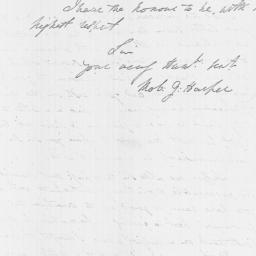 I have the honour to be, with
highest respect
Sir
your very Humb. Sert.
Rob. G. Harper